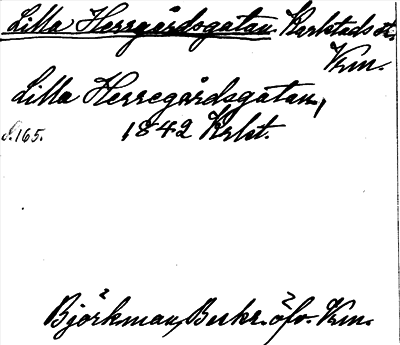 Lilla Herrgårdsgatan. Karlstads st.
Vrm.
Lilla Herregårdsgatan,
S.165. 1842 Krlst.
Björkman, Beskr. öfv. Vrm.